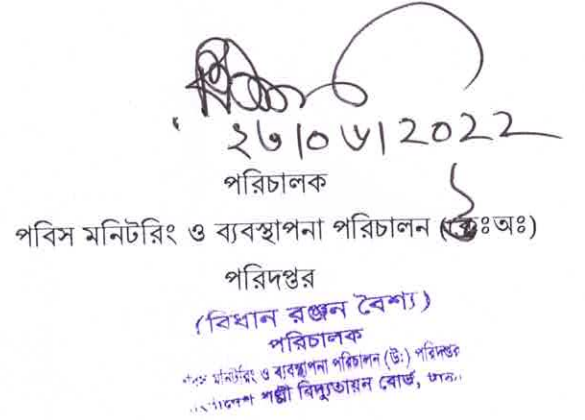 ২৬|০৬|2022
পরিচালক
পবিস মনিটরিং ও ব্যবস্থাপনা পরিচালন (উঃঅঃ)
পরিদপ্তর
(বিধান রঞ্জন বৈশ্য)
পরিচালক
মনিটরিং ও ব্যবস্থাপনা পরিচালন (উ:) পরিদপ্তর
পল্লী বিদ্যুতায়ন বোর্ড,